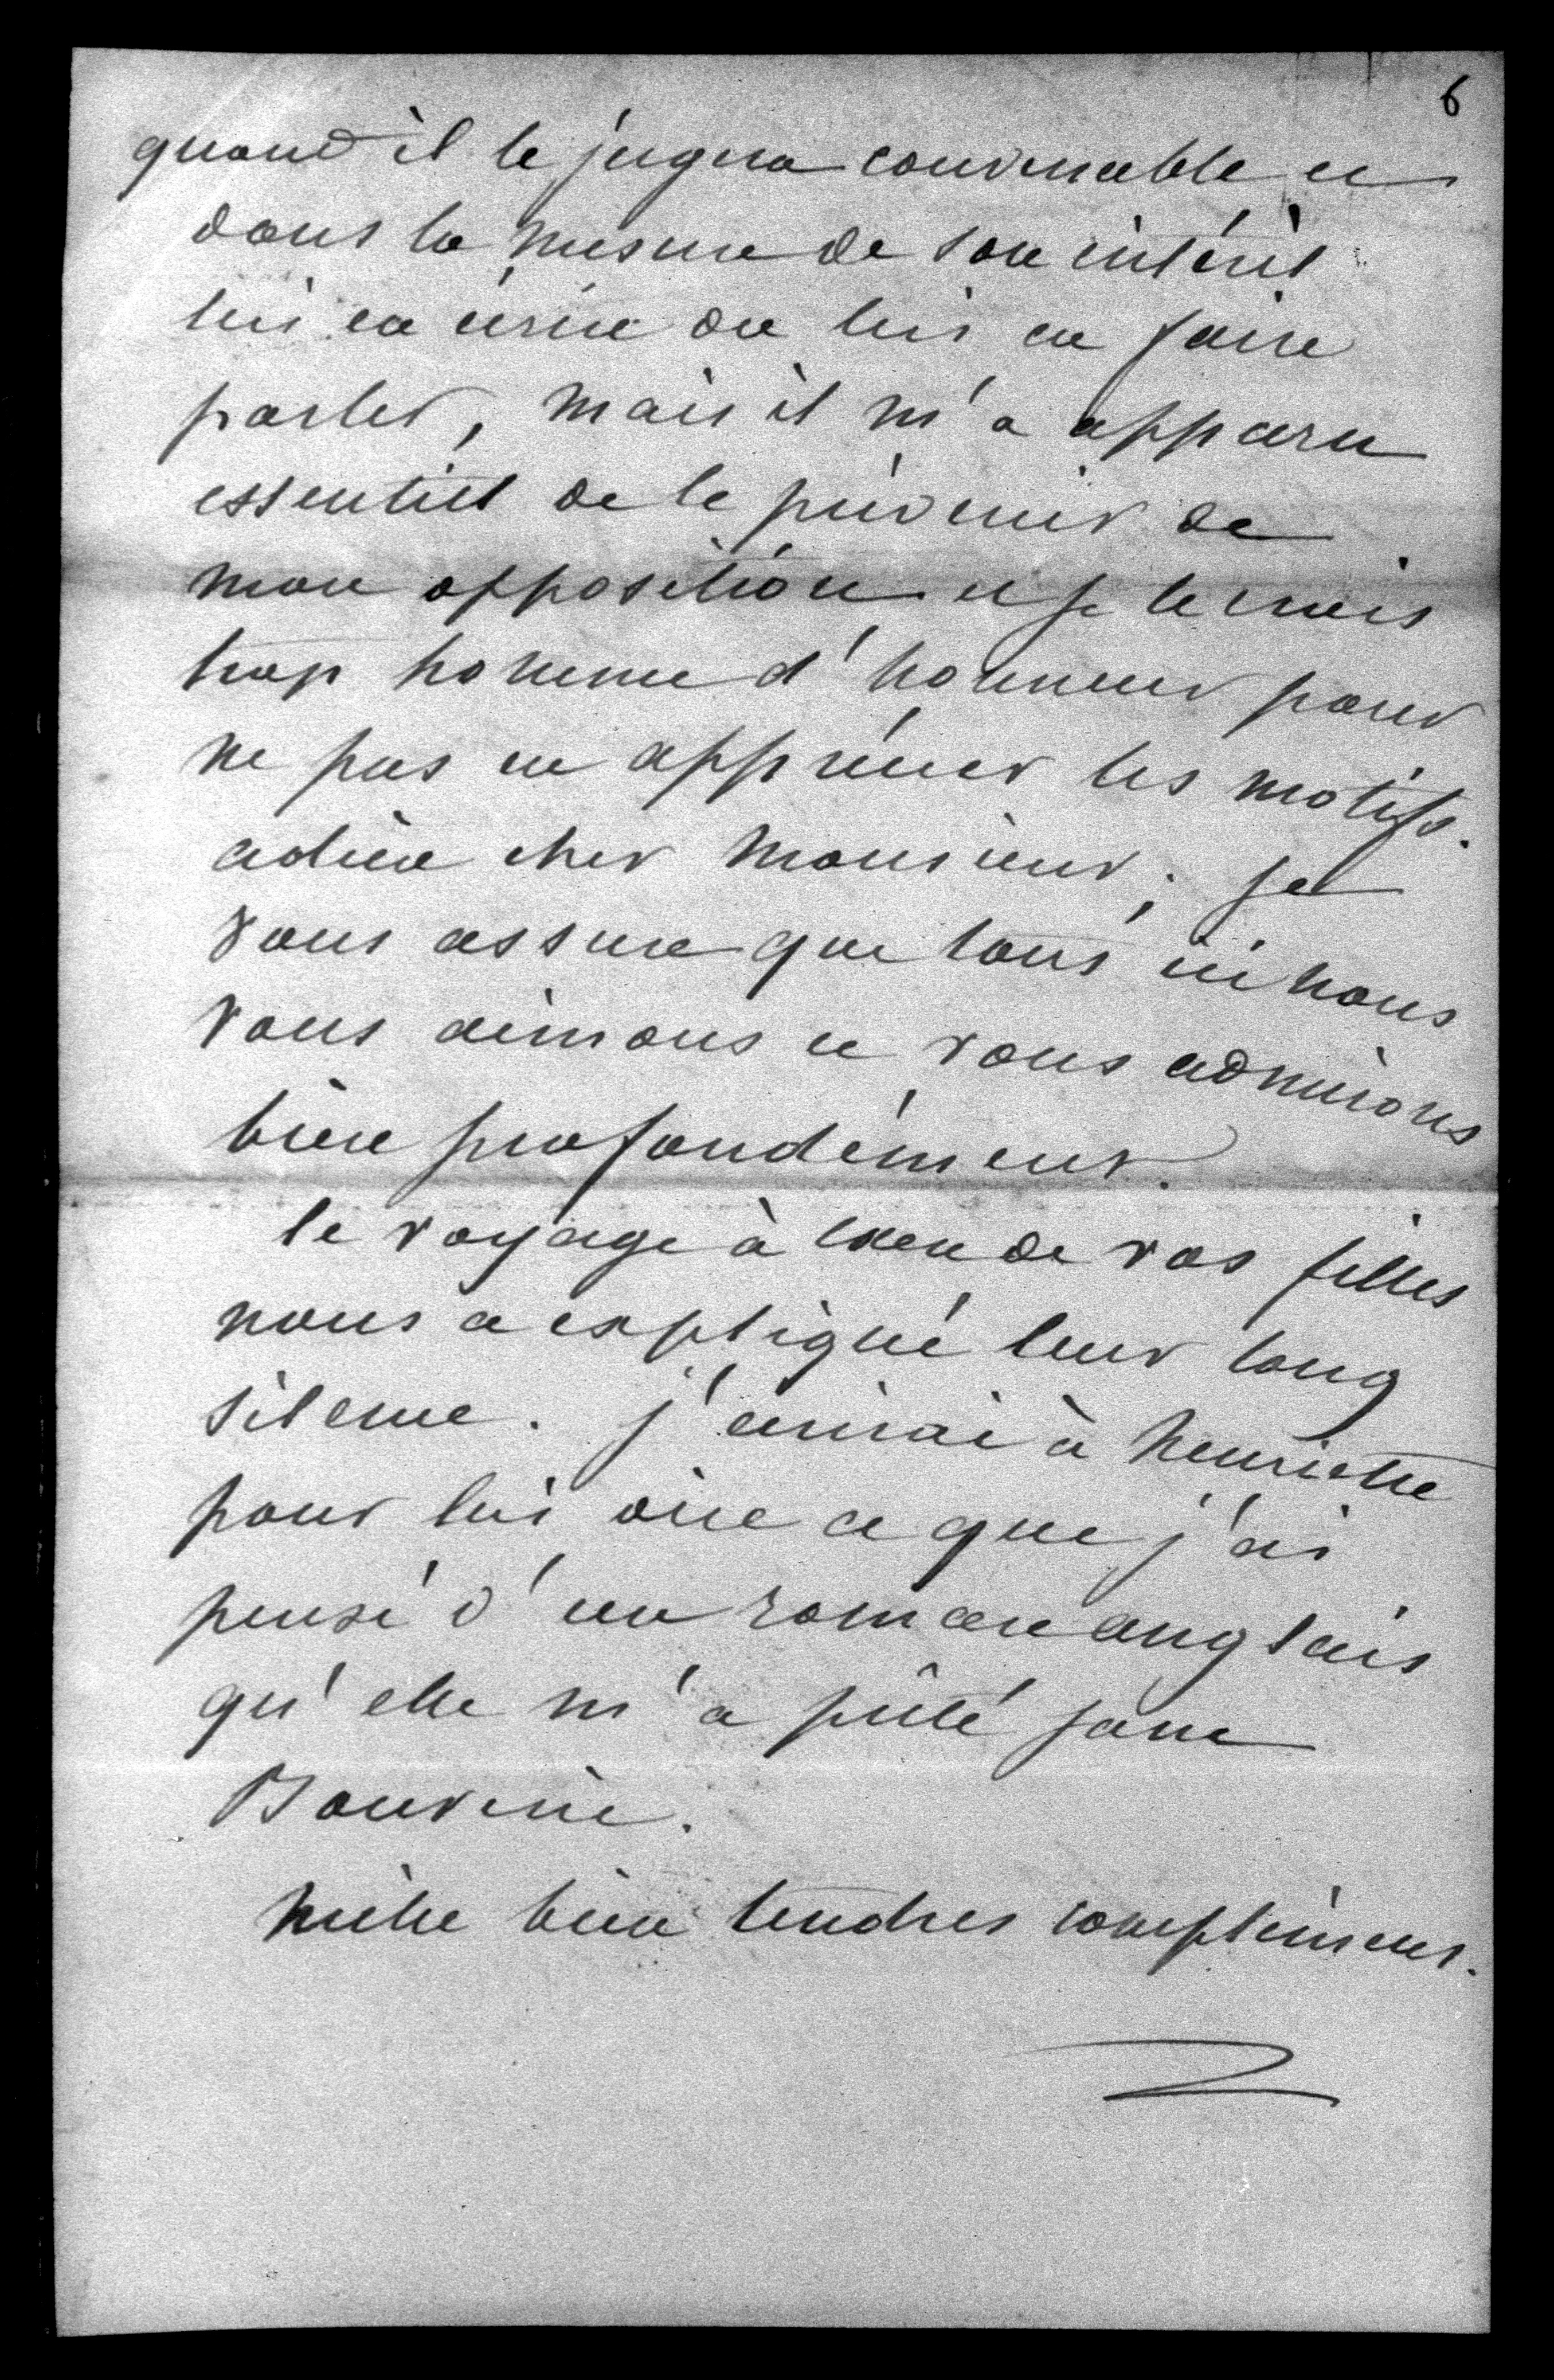 6
quand il le jugera convenable et
dans la mesure de son intérêt
lui en écrire ou lui en faire
parler, mais il m'a apparu
essentiel de le prévenir de
mon opposition et je le crois
trop homme d'honneur pour
ne pas en apprécier les motifs.
adieu cher Monsieur; je
vous assure que tous ici nous
vous aimons et vous admirons
bien profondément.
le voyage à Caen de vos filles
nous a expliqué leur long
silence. j'écrirai à henriette
pour lui dire ce que j'ai
pensé d'un roman anglais
qu'elle m'a prêté jane
Bouverie.
mille bien tendres compliments.